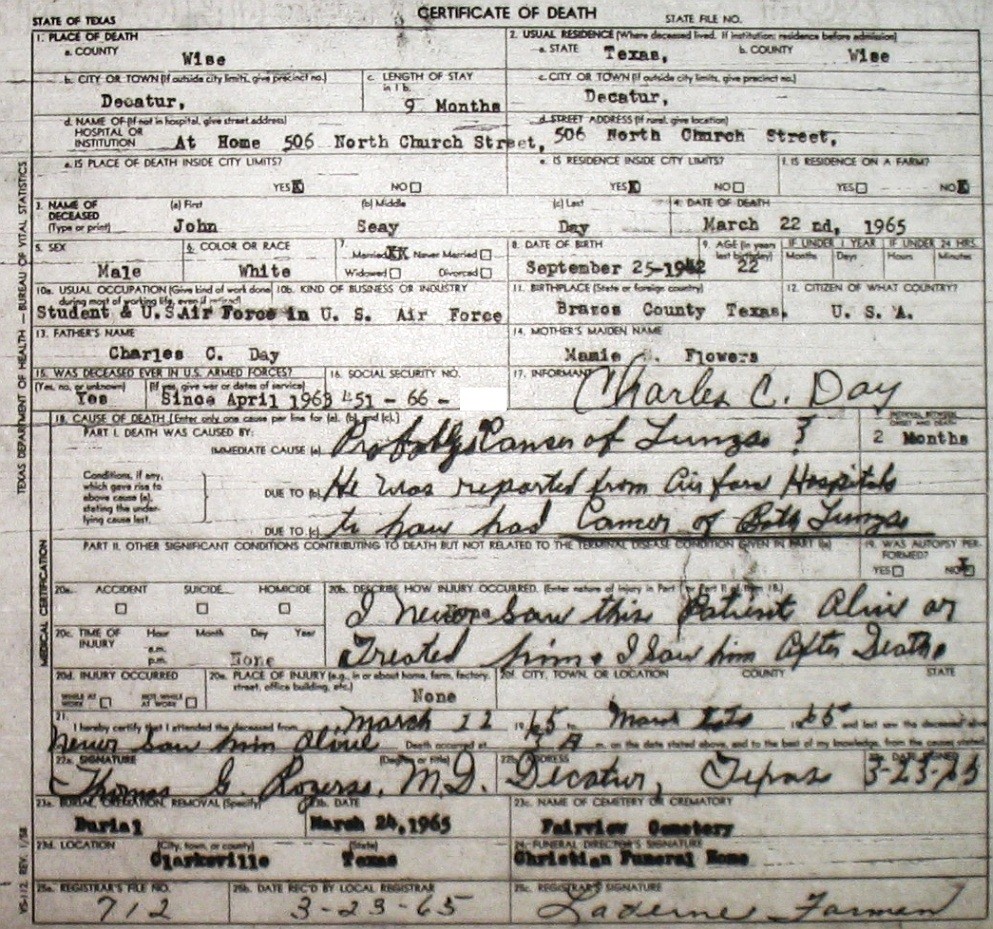 CERTIFICATE OF DEATH
STATE OF TEXAS STATE FILE NO.
1. PLACE OF DEATH 2. USUAL RESIDENCE (Where deceased lived. If institution: residence before admission)
a. COUNTY Wise a. STATE Texas, b. COUNTY Wise
b. CITY OR TOWN (If outside city limits, give precinct no.) c. LENGTH OF STAY in 1 b. c. CITY OR TOWN (If outside city limits, give precinct no.)
Decatur, 9 Months Decatur,
d. NAME OF (If not in hospital, give street address) HOSPITAL OR INSTITUTION d. STREET ADDRESS (If rural, give location)
At Home 506 North Church Street, 506 North Church Street,
e. IS PLACE OF DEATH INSIDE CITY LIMITS? e. IS RESIDENCE INSIDE CITY LIMITS? f. IS RESIDENCE ON A FARM?
YES X NO YES X NO YES NO X
3. NAME OF DECEASED (Type or print) (a) First (b) Middle (c) Last 4. DATE OF DEATH
John Seay Day March 22 nd, 1965
5. SEX 6. COLOR OR RACE 7. Married XX Never Married 8. DATE OF BIRTH 9. AGE (In years last birthday) IF UNDER 1 YEAR IF UNDER 24 HRS.
Widowed Divorced Months Days Hours Minutes
Male White September 25-1942 22
10a. USUAL OCCUPATION (Give kind of work done during most of working life, even if retired) 10b. KIND OF BUSINESS OR INDUSTRY 11. BIRTHPLACE (State or foreign country) 12. CITIZEN OF WHAT COUNTRY?
Student & U.S Air Force in U. S. Air Force Brazos County Texas. U. S. A.
13. FATHER'S NAME 14. MOTHER'S MAIDEN NAME
Charles C. Day Mamie Flowers
15. WAS DECEASED EVER IN U.S. ARMED FORCES? 16. SOCIAL SECURITY NO. 17. INFORMANT
(Yes, no, or unknown) (If yes, give war or dates of service)
Yes Since April 1963 451 - 66 - Charles C. Day
18. CAUSE OF DEATH [Enter only one cause per line for (a), (b), and (c).] INTERVAL BETWEEN ONSET AND DEATH
PART I. DEATH WAS CAUSED BY:
IMMEDIATE CAUSE (a) Probably Cancer of Lungs ? 2 Months
Conditions, if any, which gave rise to above cause (a), stating the underlying cause last.
DUE TO (b) He was reported from Air force Hospitals
DUE TO (c) to have had Cancer of Both Lungs
PART II. OTHER SIGNIFICANT CONDITIONS CONTRIBUTING TO DEATH BUT NOT RELATED TO THE TERMINAL DISEASE CONDITION GIVEN IN PART I(a) 19. WAS AUTOPSY PERFORMED?
YES NO X
20a. ACCIDENT SUICIDE HOMICIDE 20b. DESCRIBE HOW INJURY OCCURRED. (Enter nature of injury in Part I or Part II of item 18.)
None
I never Saw this Patient Alive or
20c. TIME OF INJURY Hour Month Day Year
a.m.
p.m. None
Treated him. I Saw him After Death.
20d. INJURY OCCURRED 20e. PLACE OF INJURY (e.g., in or about home, farm, factory, street, office building, etc.) 20f. CITY, TOWN, OR LOCATION COUNTY STATE
WHILE AT WORK NOT WHILE AT WORK None
21. I hereby certify that I attended the deceased from March 22 1965 to March 1965 and last saw the deceased alive
Never Saw him Alive Death occurred at 3 A m. on the date stated above, and to the best of my knowledge, from the causes stated.
22a. SIGNATURE (Degree or title) 22b. ADDRESS 22c. DATE SIGNED
Thomas G. Rogers, M.D. Decatur, Texas 3-23-65
23a. BURIAL, CREMATION, REMOVAL (Specify) 23b. DATE 23c. NAME OF CEMETERY OR CREMATORY
Burial March 24, 1965 Fairview Cemetery
23d. LOCATION (City, town, or county) (State) 24. FUNERAL DIRECTOR'S SIGNATURE
Clarksville Texas Christian Funeral Home
25a. REGISTRAR'S FILE NO. 25b. DATE REC'D BY LOCAL REGISTRAR 25c. REGISTRAR'S SIGNATURE
712 3-23-65 Laverne Forman
TEXAS DEPARTMENT OF HEALTH — BUREAU OF VITAL STATISTICS
MEDICAL CERTIFICATION
VS-112 REV. 1/58